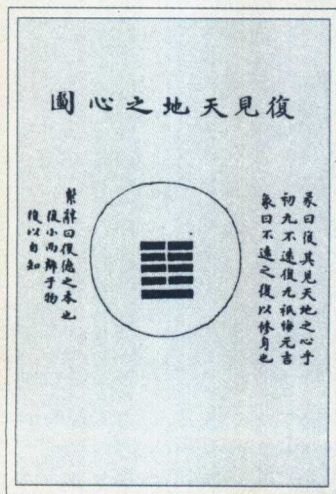 復見天地之心圖
彖曰復其見天地之心乎
初九不遠復无祇悔元吉
象曰不遠之復以修身也
繫辭曰復德之本也
復小而辨于物
復以自知